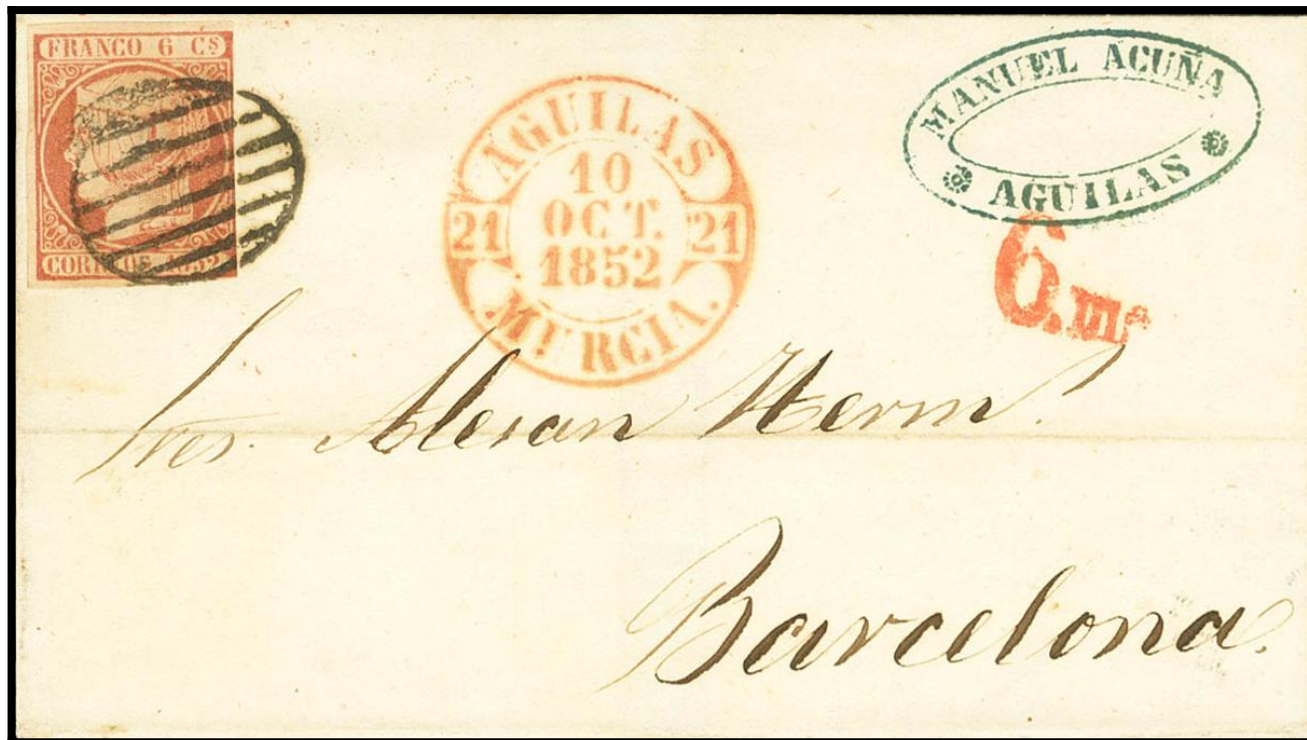 FRANCO 6 Cs
CORREOS 1852
AGUILAS
10
OCT.
1852
21 21
MURCIA.
MANUEL ACUÑA
AGUILAS
6.ms
Sres. Alesan Herms.
Barcelona.